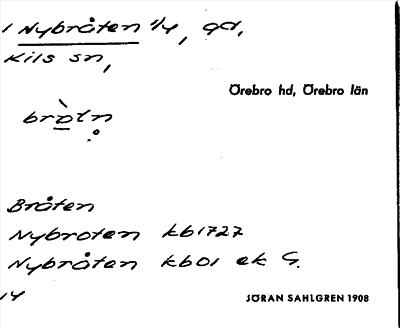 1 Nybråten 1/4, gd,
Kils sn,
Örebro hd, Örebro län
bròtn
Bråten
Nybroten kb 1727
Nybråten kb 01 ek G.
14
JÖRAN SAHLGREN 1908